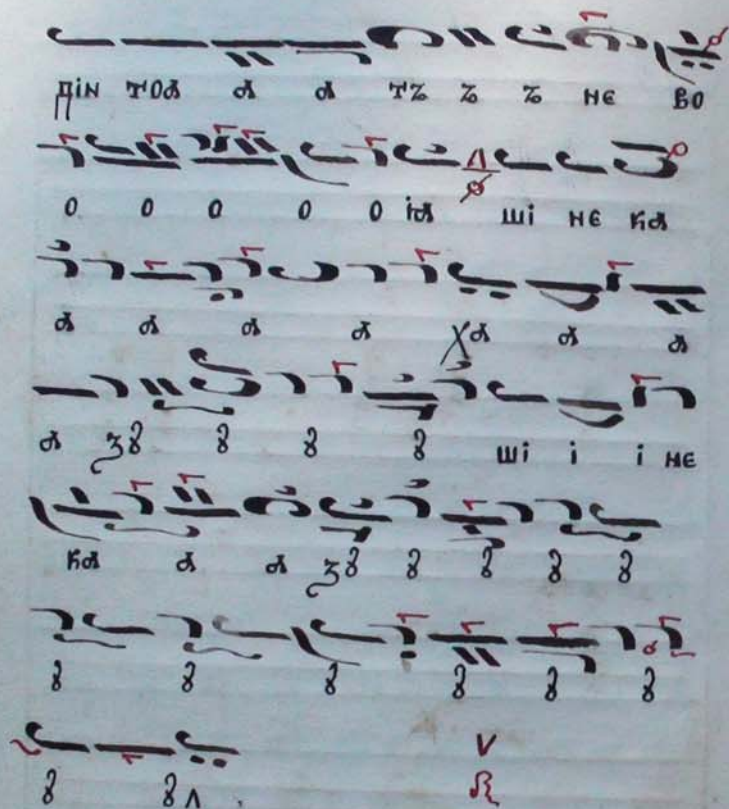 Дін тоа а а тъ ъ ъ не во
о о о о о іа ші не ка
а а а а а а а
а зꙋ ꙋ ꙋ ꙋ ші і і не
ка а а зꙋ ꙋ ꙋ ꙋ ꙋ
ꙋ ꙋ ꙋ ꙋ ꙋ ꙋ
ꙋ ꙋ